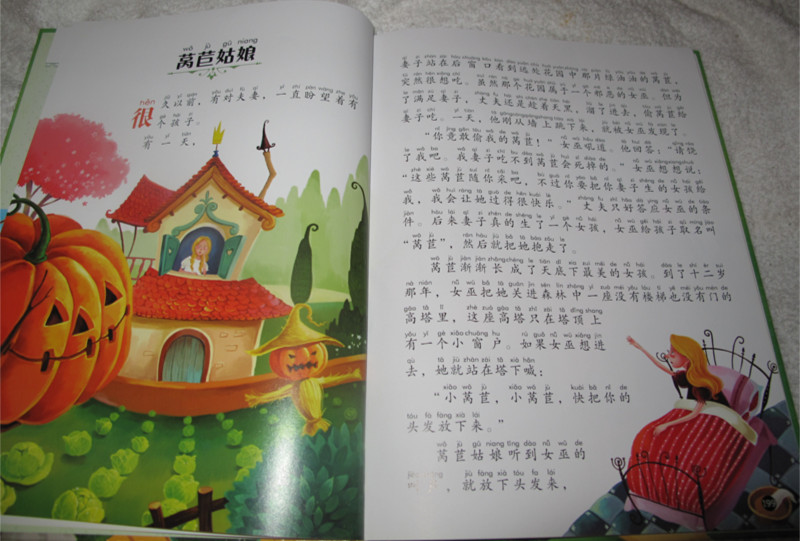 莴苣姑娘
很久以前，有对夫妻，一直盼望着有
个孩子。
有一天，
妻子站在后窗口看到远处花园中那片绿油油的莴苣，
突然很想吃。虽然那个花园属于一个邪恶的女巫。但为
了满足妻子，丈夫还是趁着天黑，溜了进去，偷莴苣给
妻子吃。一天，他刚从墙上跳下来，就被女巫发现了。
“你竟敢偷我的莴苣！”女巫吼道。他回答：“请饶
了我吧。我妻子吃不到莴苣会死掉的。”女巫想想说：
“这些莴苣随你采吧，不过你要把你妻子生的女孩给
我，我会让她过得很快乐。”丈夫只好答应女巫的条
件。后来妻子真的生了一个女孩，女巫给孩子取名叫
“莴苣”，然后就把她抱走了。
莴苣渐渐长成了天底下最美的女孩。到了十二岁
那年，女巫把她关进森林中一座没有楼梯也没有门的
高塔里，这座高塔只在塔顶上
有一个小窗户。如果女巫想进
去，她就站在塔下喊：
“小莴苣，小莴苣，快把你的
头发放下来。”
莴苣姑娘听到女巫的
，就放下头发来，